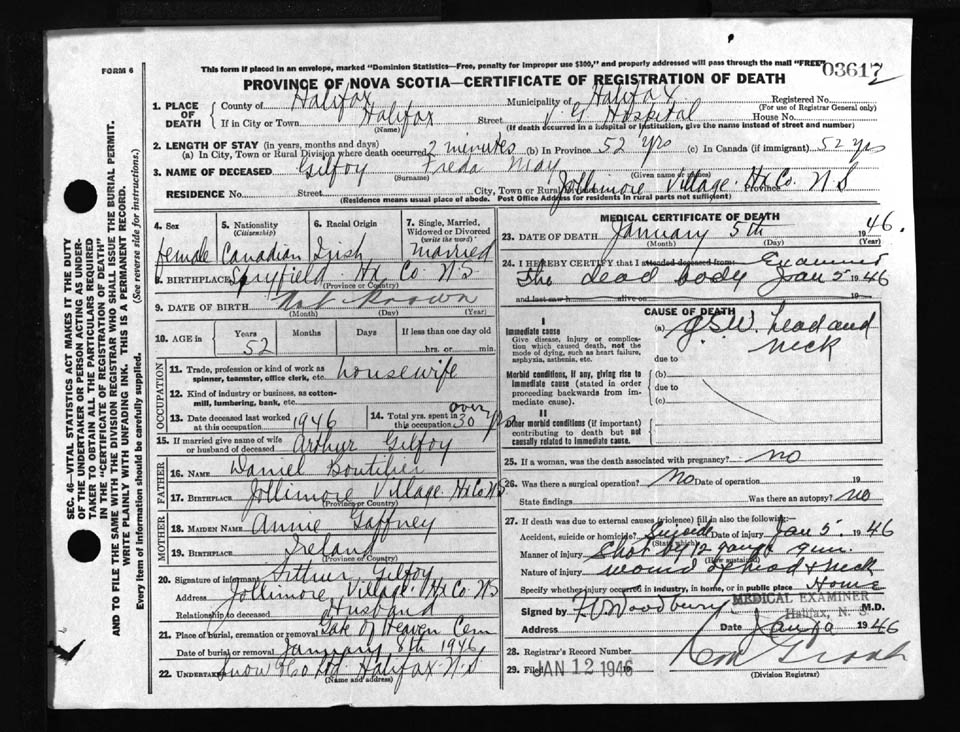 FORM 6
This form if placed in an envelope, marked "Dominion Statistics—Free, penalty for improper use $300," and properly addressed will pass through the mail "FREE"
03617
PROVINCE OF NOVA SCOTIA—CERTIFICATE OF REGISTRATION OF DEATH
SEC. 46—VITAL STATISTICS ACT MAKES IT THE DUTY
OF THE UNDERTAKER OR PERSON ACTING AS UNDER-
TAKER TO OBTAIN ALL THE PARTICULARS REQUIRED
IN THE "CERTIFICATE OF REGISTRATION OF DEATH"
AND TO FILE THE SAME WITH THE DIVISION REGISTRAR WHO SHALL ISSUE THE BURIAL PERMIT.
WRITE PLAINLY WITH UNFADING INK. THIS IS A PERMANENT RECORD.
Every item of Information should be carefully supplied. (See reverse side for instructions.)
1. PLACE OF DEATH
County of Halifax Municipality of Halifax Registered No.
(For use of Registrar General only)
If in City or Town Halifax Street V. G Hospital House No.
(Name) (If death occurred in a hospital or institution, give the name instead of street and number)
2. LENGTH OF STAY (in years, months and days)
(a) In City, Town or Rural Division where death occurred 2 minutes (b) In Province 52 yrs (c) In Canada (if immigrant) 52 yrs
3. NAME OF DECEASED Gilfoy Freda May
(Surname) (Given name or names)
RESIDENCE No. Street City, Town or Rural Jollimore Village Hx Co. Province N S
(Residence means usual place of abode. Post Office Address for residents in rural parts not sufficient)
4. Sex female
5. Nationality (Citizenship) Canadian
6. Racial Origin Irish
7. Single, Married, Widowed or Divorced (write the word) Married
8. BIRTHPLACE Spryfield Hx Co N.S
(Province or Country)
9. DATE OF BIRTH Not Known
(Month) (Day) (Year)
10. AGE in Years 52 Months Days If less than one day old
hrs. or min.
OCCUPATION
11. Trade, profession or kind of work as spinner, teamster, office clerk, etc. housewife
12. Kind of industry or business, as cotton-mill, lumbering, bank, etc.
13. Date deceased last worked at this occupation 1946
14. Total yrs. spent in this occupation over 30 yrs
15. If married give name of wife or husband of deceased Arthur Gilfoy
FATHER
16. NAME Daniel Boutilier
17. BIRTHPLACE Jollimore Village Hx Co N S
(Province or Country)
MOTHER
18. MAIDEN NAME Annie Gaffney
19. BIRTHPLACE Ireland
(Province or Country)
20. Signature of informant Arthur Gilfoy
Address Jollimore Village Hx Co NS
Relationship to deceased Husband
21. Place of burial, cremation or removal Gate of Heaven Cem
Date of burial or removal January 8th 1946
22. UNDERTAKER Snow & Co Ltd Halifax N.S
(Name and address)
MEDICAL CERTIFICATE OF DEATH
23. DATE OF DEATH January 5th 1946.
(Month) (Day) (Year)
24. I HEREBY CERTIFY that I attended deceased from: Examined
The dead body Jan 5 1946
and last saw h alive on 19
CAUSE OF DEATH
I
Immediate cause
Give disease, injury or complication which caused death, not the mode of dying, such as heart failure, asphyxia, asthenia, etc.
(a) G.S.W. head and neck
due to
Morbid conditions, if any, giving rise to immediate cause (stated in order proceeding backwards from immediate cause).
(b)
due to
(c)
II
Other morbid conditions (if important) contributing to death but not causally related to immediate cause.
25. If a woman, was the death associated with pregnancy? no
26. Was there a surgical operation? No Date of operation 19
State findings Was there an autopsy? no
27. If death was due to external causes (violence) fill in also the following:
Accident, suicide or homicide? Suicide Date of injury Jan 5. 1946
(State which)
Manner of injury Shot by 12 gauge gun.
(How sustained)
Nature of injury wound of head & neck
Specify whether injury occurred in industry, in home, or in public place Home
Signed by Woodbury M.D.
MEDICAL EXAMINER
Halifax, N. S
Address Date Jan 10 1946
28. Registrar's Record Number
29. Filed JAN 12 1946
(Division Registrar)